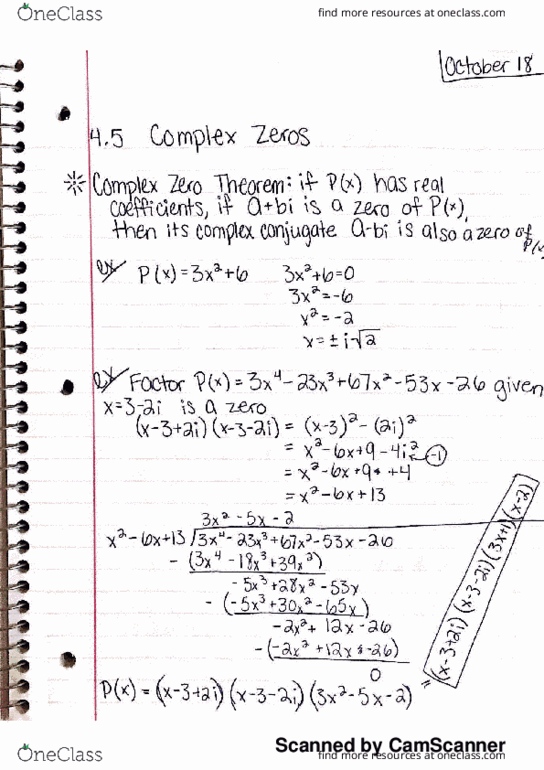 OneClass
find more resources at oneclass.com
October 18
4.5 Complex Zeros
* Complex Zero Theorem: if P(x) has real
coefficients, if a+bi is a zero of P(x),
then its complex conjugate a-bi is also a zero of P(x)
Ex P(x) = 3x²+6 3x²+6=0
3x²=-6
x²=-2
x=±i√2
Ex Factor P(x) = 3x⁴-23x³+67x²-53x-26 given
x=3-2i is a zero
(x-3+2i)(x-3-2i) = (x-3)²-(2i)²
= x²-6x+9-4i² -1
= x²-6x+9++4
= x²-6x+13
3x²-5x-2
x²-6x+13 √3x⁴-23x³+67x²-53x-26
-(3x⁴-18x³+39x²)
-5x³+28x²-53x
-(-5x³+30x²-65x)
-2x²+12x-26
-(-2x²+12x-26)
0
P(x) = (x-3+2i)(x-3-2i)(3x²-5x-2)
= (x-3+2i)(x-3-2i)(3x+1)(x-2)
Scanned by CamScanner
OneClass
find more resources at oneclass.com